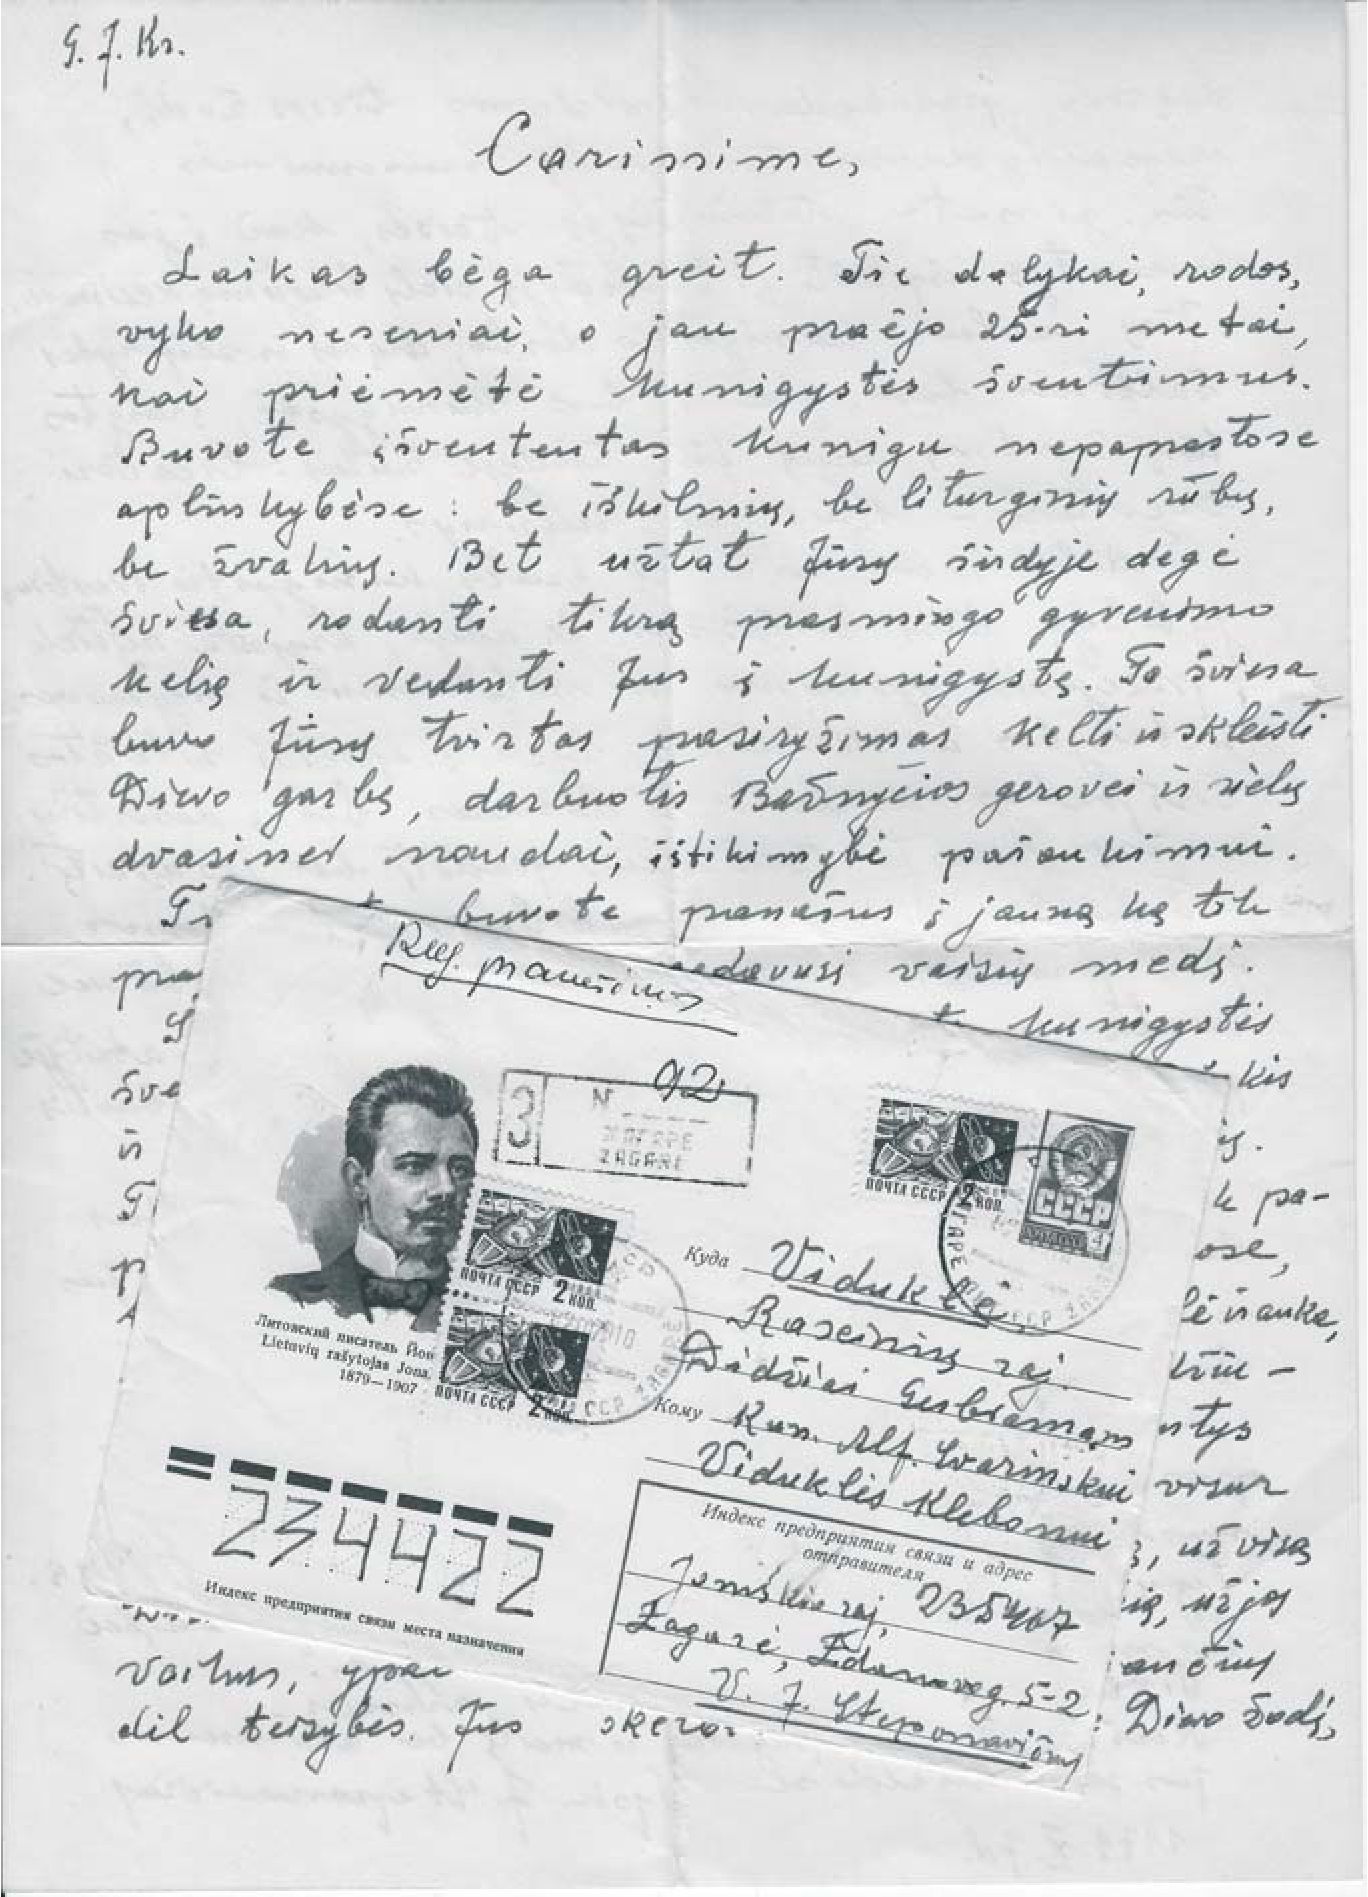 G. J. Kr.
Carissime,
Laikas bėga greit. Tie dalykai, rodos,
vyko neseniai, o jau praėjo 25-ri metai,
kai priėmėtė kunigystės šventimus.
Buvote įšvententas kunigu nepaprastose
aplinkybėse: be iškilmių, be liturginių rūbų,
be žvakių. Bet užtat Jūsų širdyje degė
šviesa, rodanti tikrą prasmingo gyvenimo
kelią ir vedanti Jus į kunigystę. Ta šviesa
buvo Jūsų tvirtas pasiryžimas kelti ir skleisti
Dievo garbę, darbuotis Bažnyčios gerovei ir sielų
dvasinei naudai, ištikimybė pašaukimui.
buvote panašus į jauną ką tik
vaisių medį.
kunigystės
šve
kis
ir
k pa-
ose,
ir auka,
visur
, už visą
, už jos
vaikus, ypač
Dievo žodį,
dėl teisybės. Jus
Reg. pranešimas
З
N 92
ЖАГАРЕ
ŽAGARĖ
ПОЧТА СССР 2 КОП.
СССР
ПОЧТА СССР 2 КОП.
ПОЧТА СССР 2 КОП.
Литовский писатель Йон
Lietuvių rašytojas Jona
1879—1907
Куда Viduklė,
Raseinių raj.
Didžiai Gerbiamam
Кому Kun. Alf. Svarinskui
Viduklės Klebonui
234422
Индекс предприятия связи места назначения
Индекс предприятия связи и адрес
отправителя
Joniškio raj, 235407
Žagarė, Ždanovo g. 5-2
V. J. Steponavičius